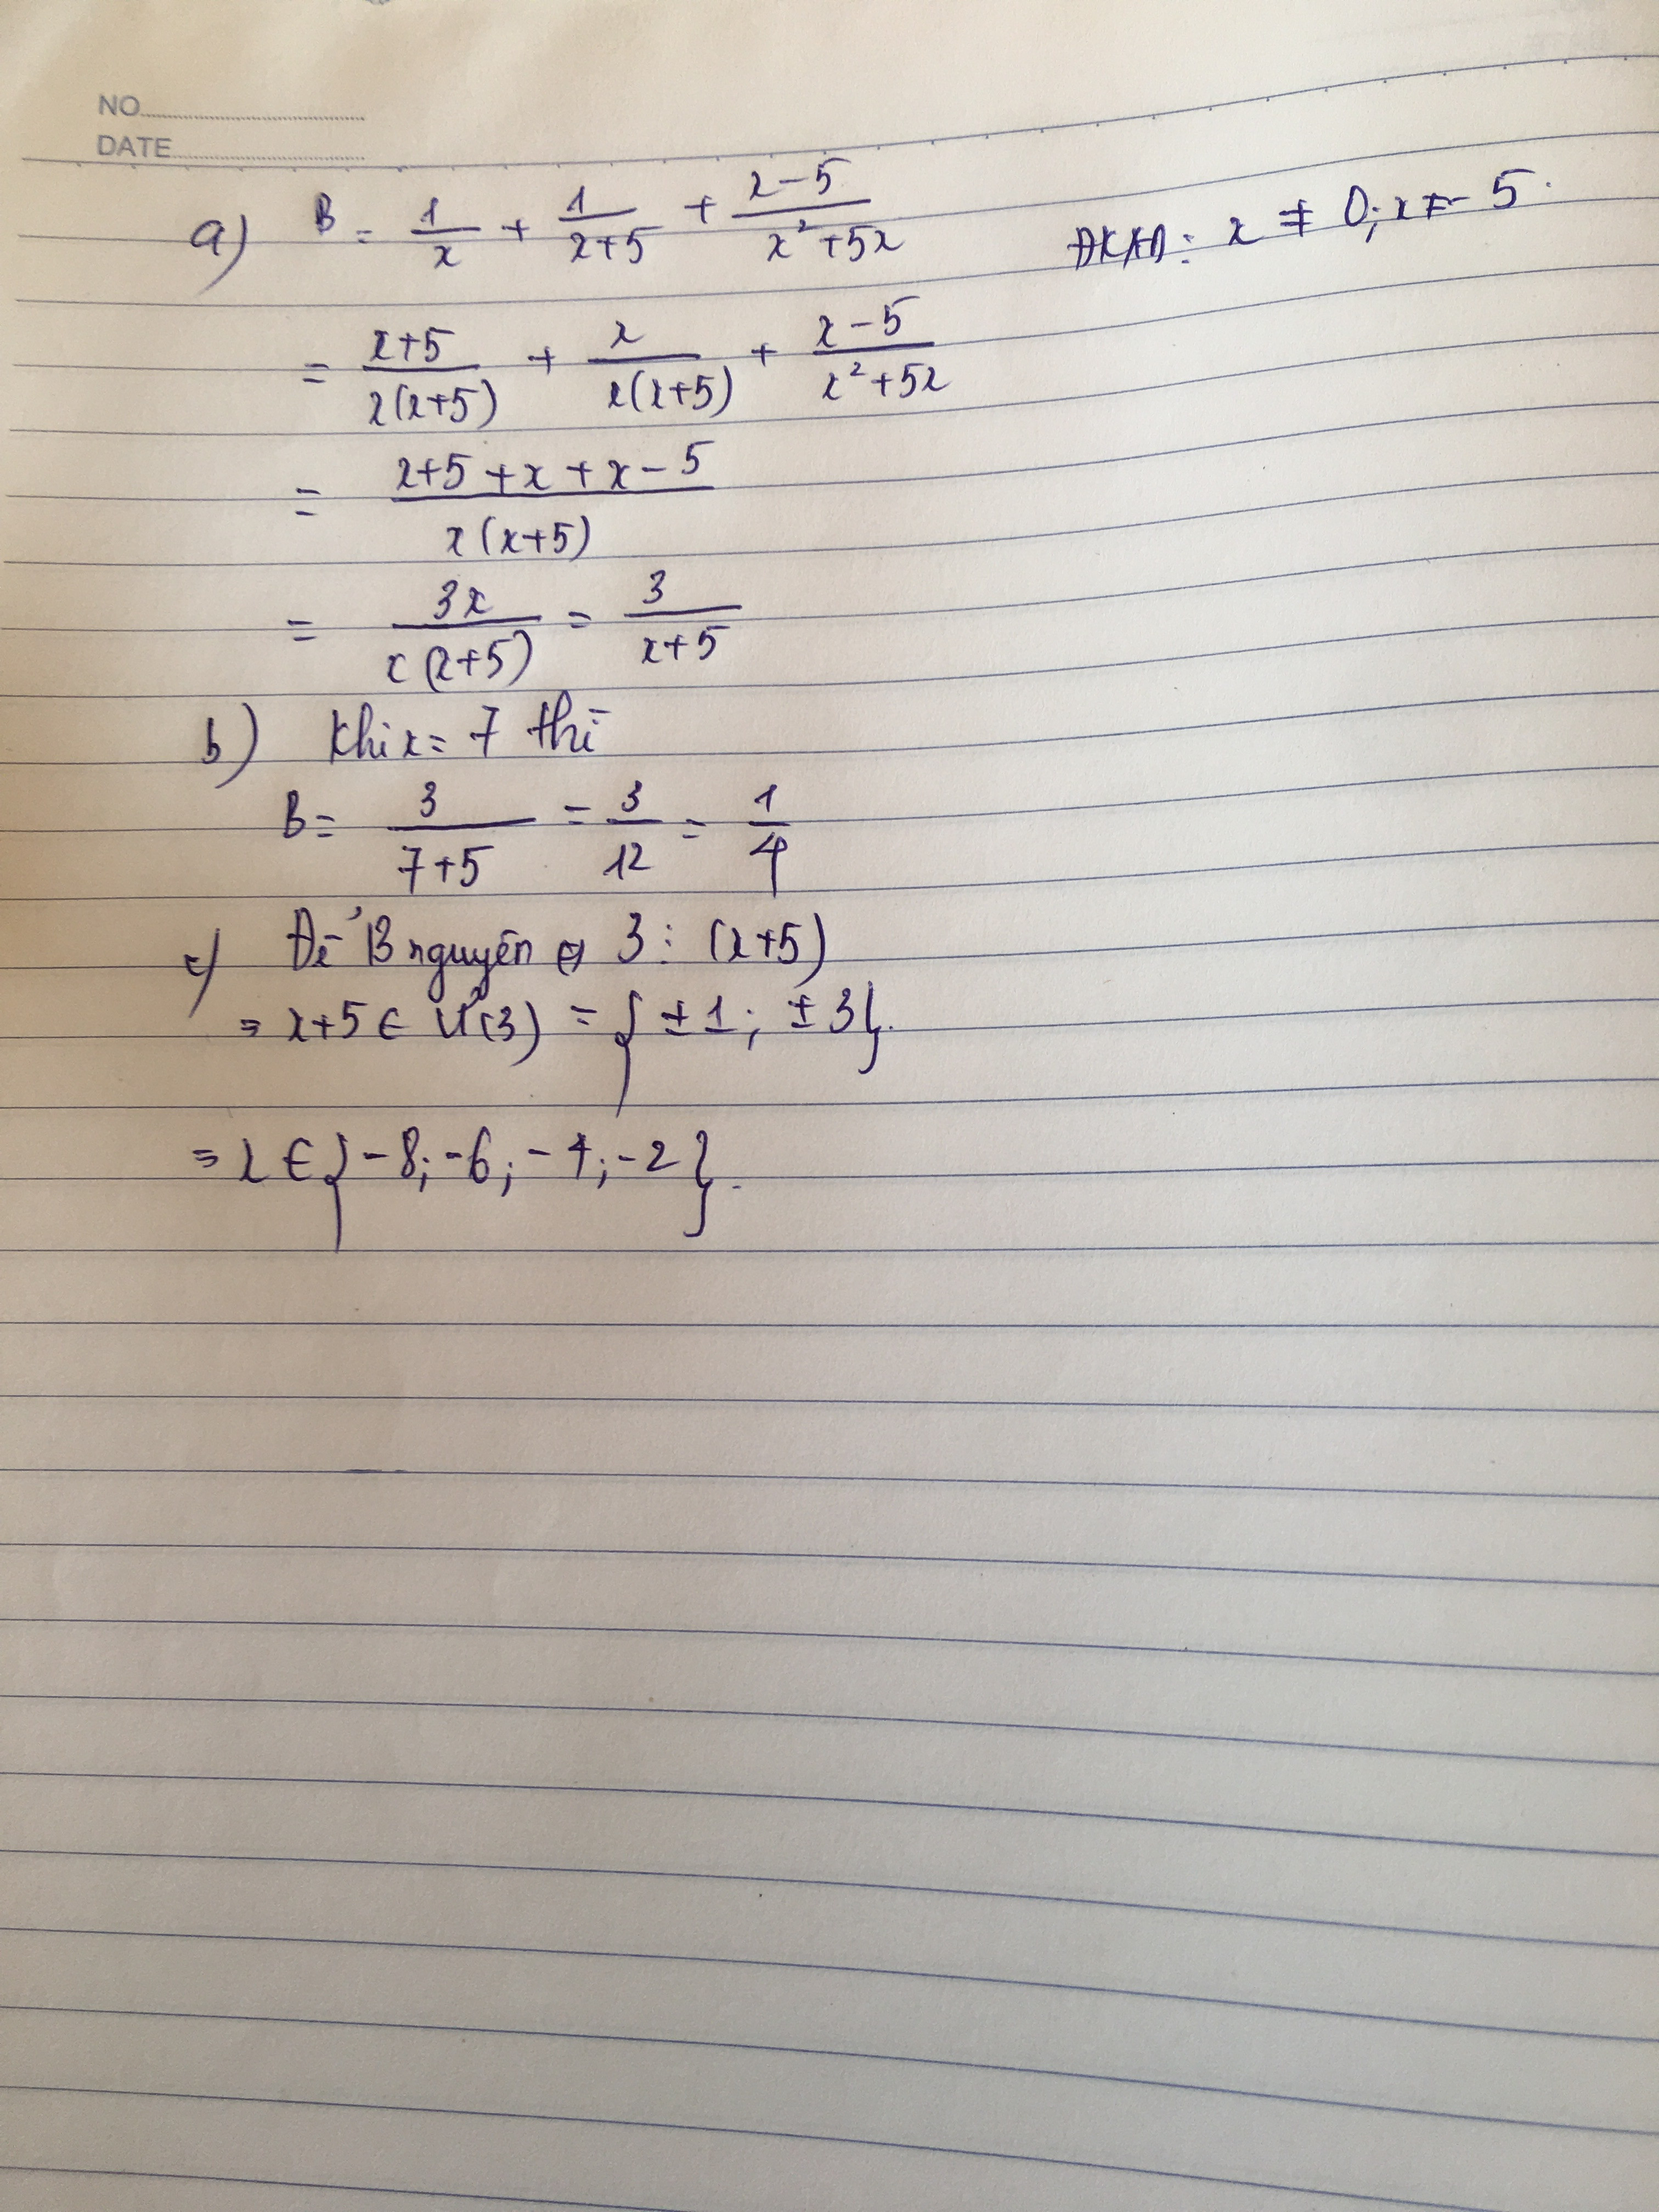 NO
DATE
a) B = 1/x + 1/(x+5) + (x-5)/(x²+5x) ĐKXĐ: x ≠ 0; x ≠ -5.
= (x+5)/(x(x+5)) + x/(x(x+5)) + (x-5)/(x²+5x)
= (x+5+x+x-5)/(x(x+5))
= 3x/(x(x+5)) = 3/(x+5)
b) Khi x = 7 thì
B = 3/(7+5) = 3/12 = 1/4
c) Để B nguyên ⇔ 3 ⋮ (x+5)
⇒ x+5 ∈ Ư(3) = {±1; ±3}.
⇒ x ∈ {-8; -6; -4; -2}.